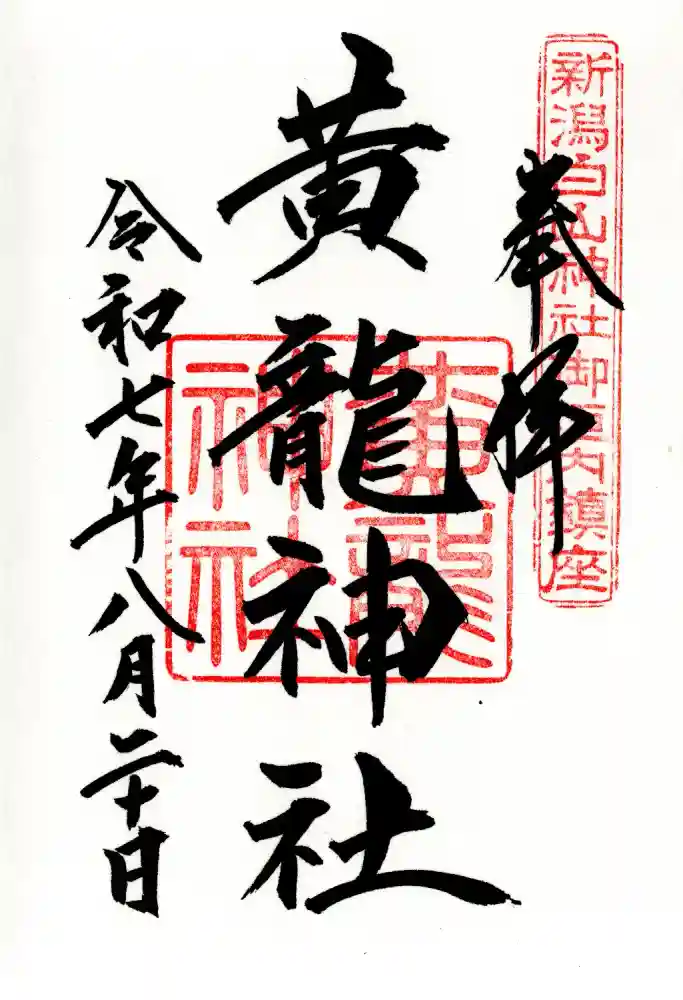 新潟白山神社御境内鎮座
奉拝
黄龍神社
黄龍
神社
令和七年八月二十日